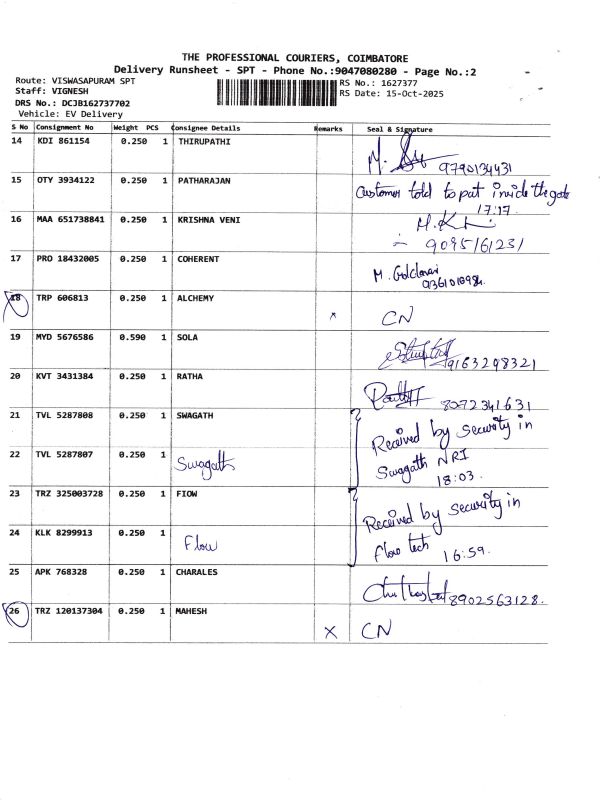 THE PROFESSIONAL COURIERS, COIMBATORE
Delivery Runsheet - SPT - Phone No.:9047080280 - Page No.:2
Route: VISWASAPURAM SPT
Staff: VIGNESH
DRS No.: DCJB162737702
Vehicle: EV Delivery
RS No.: 1627377
RS Date: 15-Oct-2025
S No Consignment No Weight PCS Consignee Details Remarks Seal & Signature
14 KDI 861154 0.250 1 THIRUPATHI M. 9790134431
15 OTY 3934122 0.250 1 PATHARAJAN Customer told to put inside the gate
17:17
16 MAA 651738841 0.250 1 KRISHNA VENI
9095161231
17 PRO 18432005 0.250 1 COHERENT M.
18 TRP 606813 0.250 1 ALCHEMY x CN
19 MYD 5676586 0.590 1 SOLA 9163298321
20 KVT 3431384 0.250 1 RATHA 8072341631
21 TVL 5287808 0.250 1 SWAGATH Received by security in
22 TVL 5287807 0.250 1 Swagath Swagath NRI
18:03.
23 TRZ 325003728 0.250 1 FIOW Received by security in
24 KLK 8299913 0.250 1 Flow Flow tech 16:59.
25 APK 768328 0.250 1 CHARALES 8902563128.
26 TRZ 120137304 0.250 1 MAHESH X CN